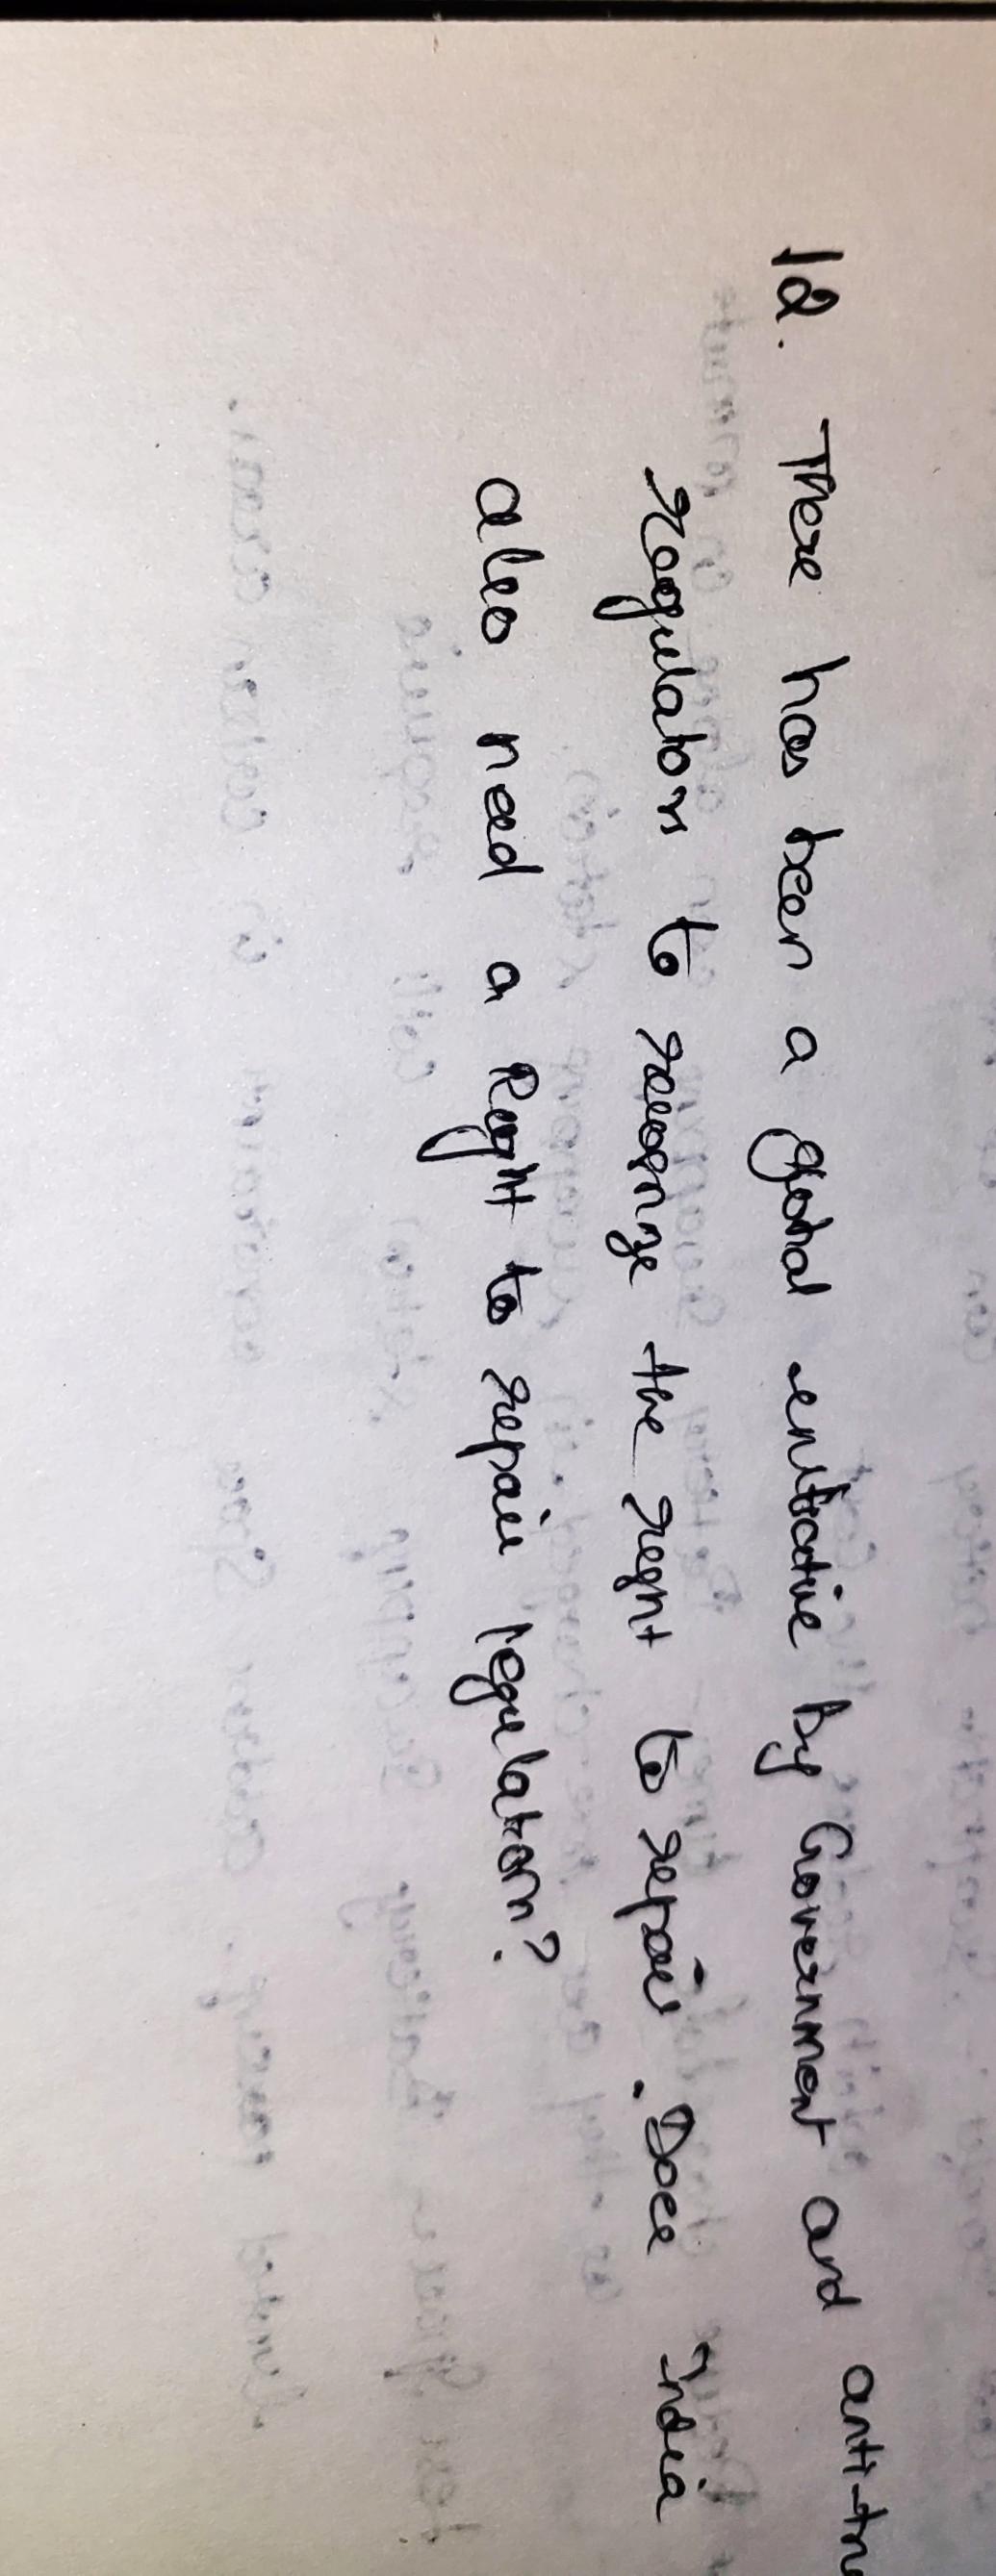 12. There has been a global initiative by Government and anti-tru
regulators to recognize the right to repair. Does India
also need a Right to repair regulation?